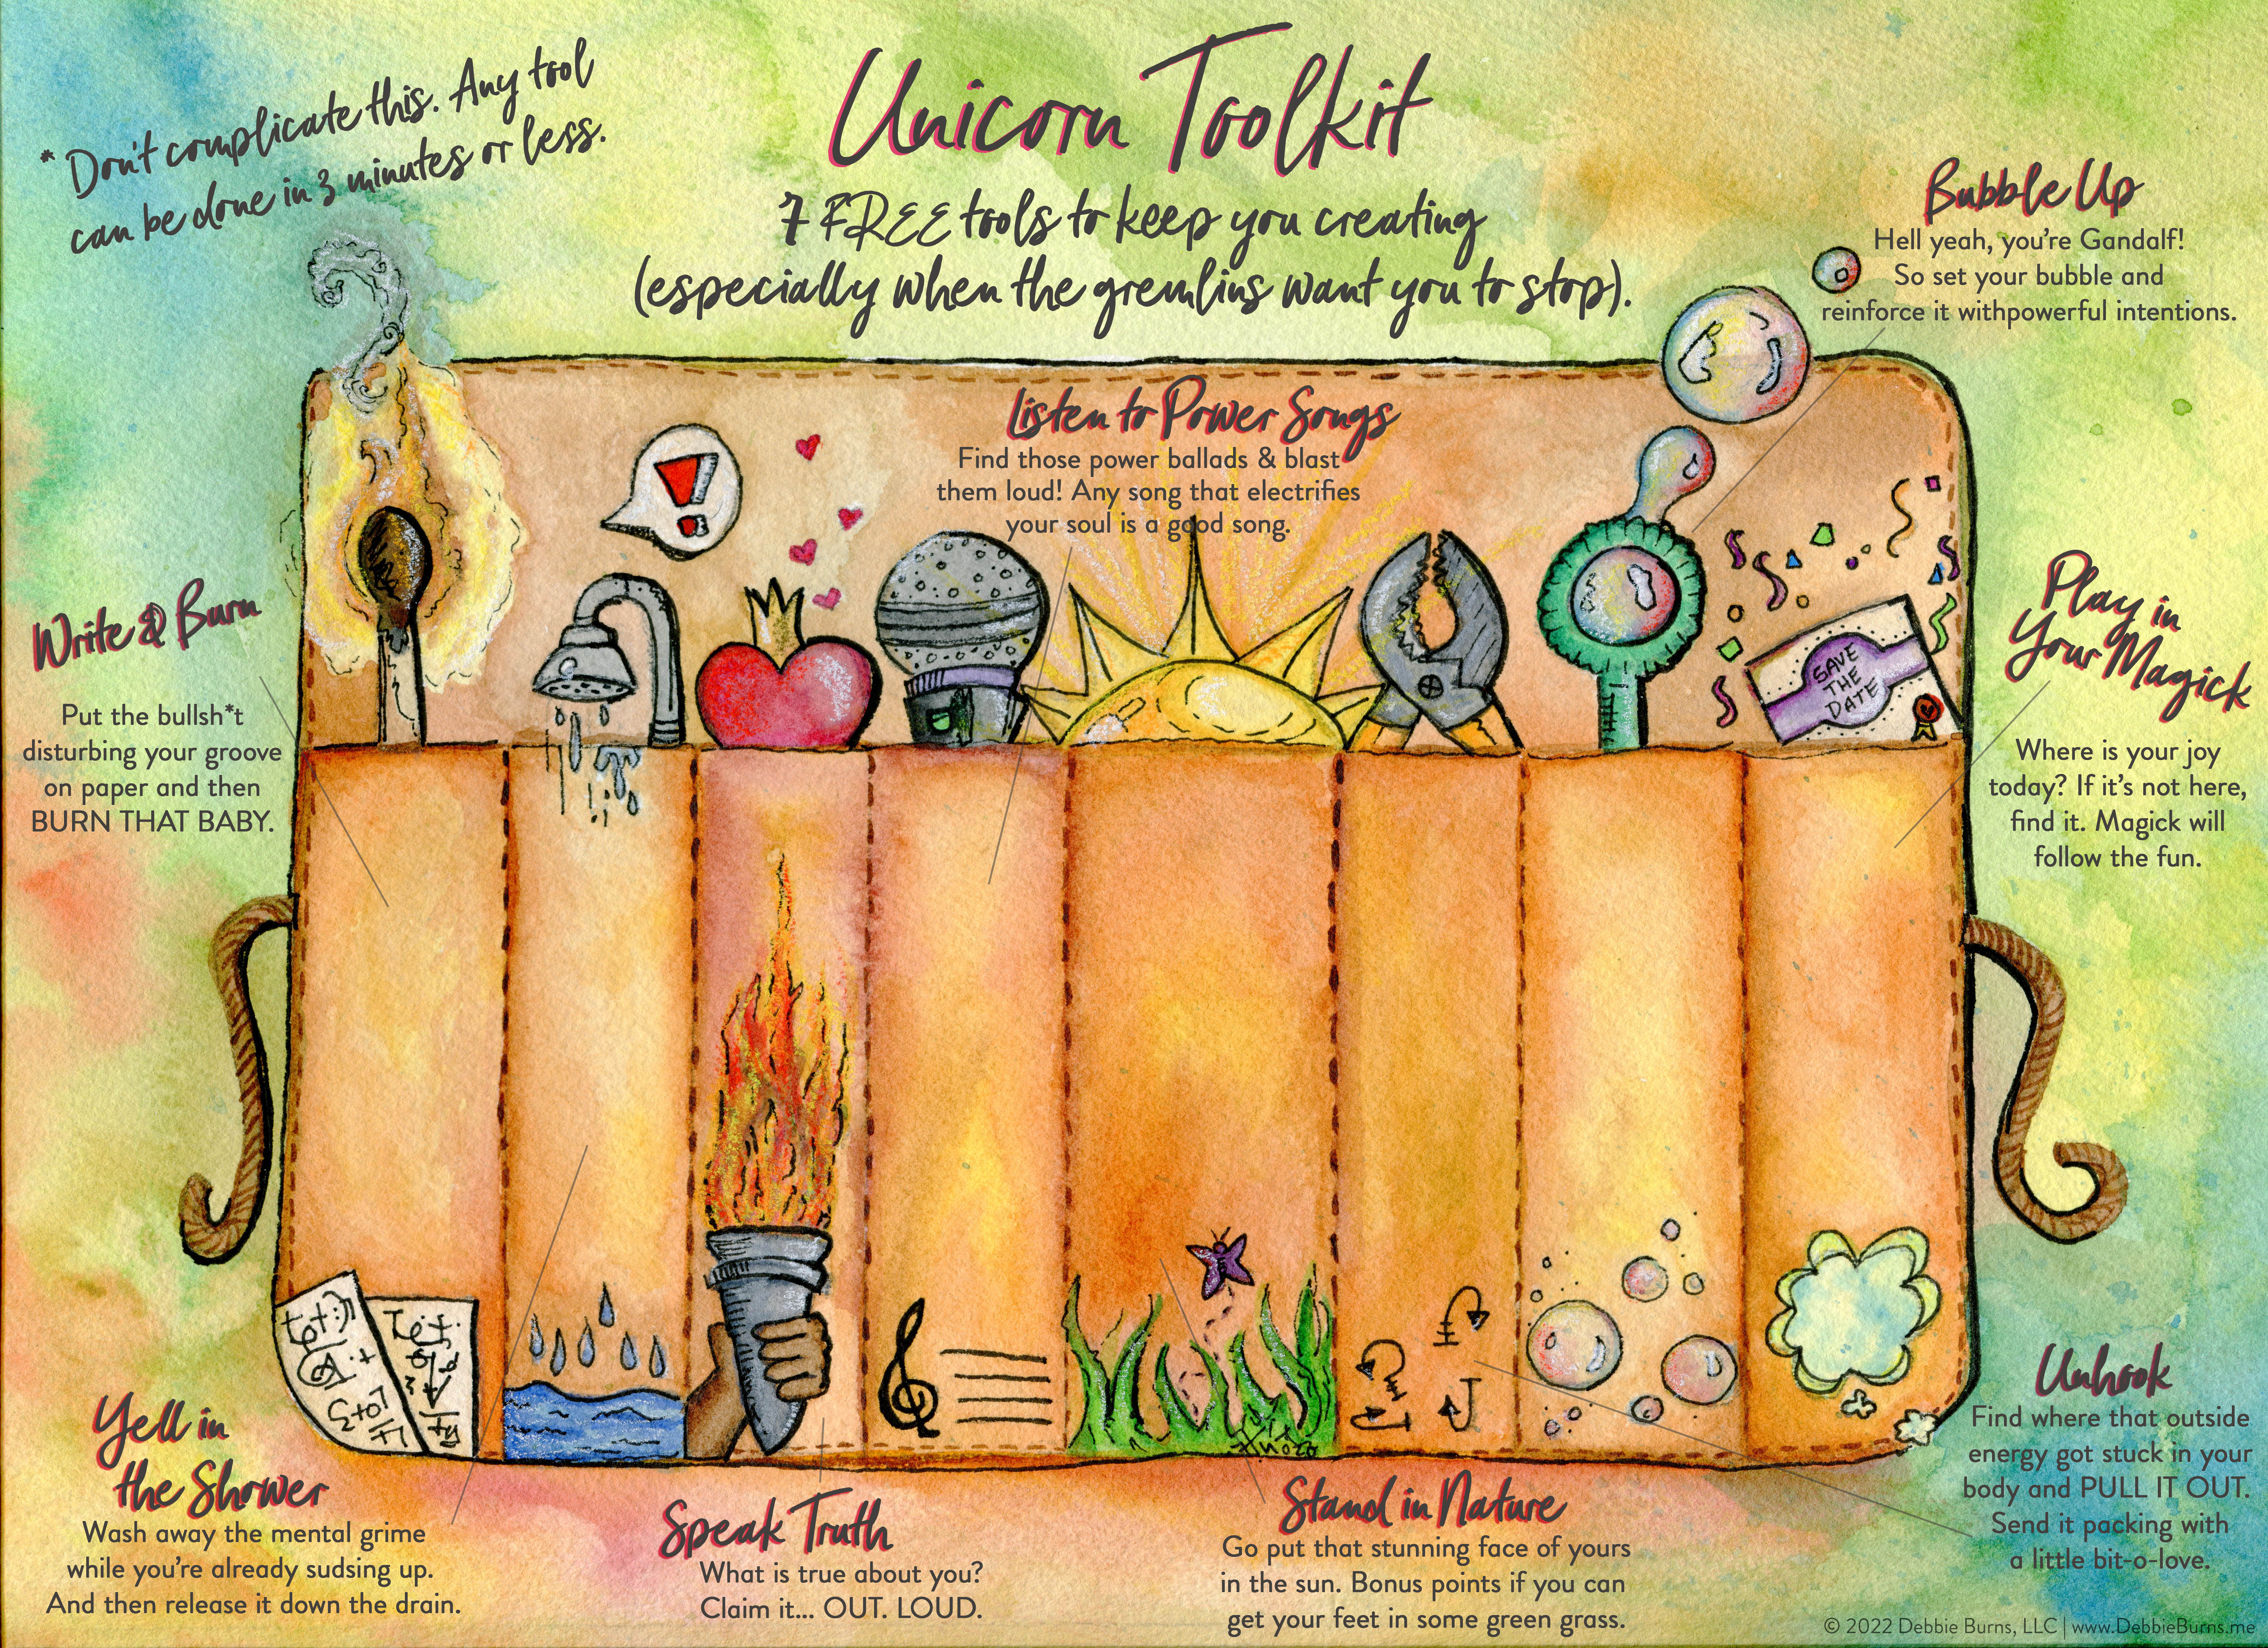 *Don't complicate this. Any tool
can be done in 3 minutes or less.
Unicorn Toolkit
7 FREE tools to keep you creating
(especially when the gremlins want you to stop).
Bubble Up
Hell yeah, you're Gandalf!
So set your bubble and
reinforce it withpowerful intentions.
Listen to Power Songs
Find those power ballads & blast
them loud! Any song that electrifies
your soul is a good song.
!
Write & Burn
Put the bullsh*t
disturbing your groove
on paper and then
BURN THAT BABY.
SAVE
THE
DATE
Play in
Your Magick
Where is your joy
today? If it's not here,
find it. Magick will
follow the fun.
Yell in
the Shower
Wash away the mental grime
while you're already sudsing up.
And then release it down the drain.
Speak Truth
What is true about you?
Claim it... OUT. LOUD.
Stand in Nature
Go put that stunning face of yours
in the sun. Bonus points if you can
get your feet in some green grass.
Unhook
Find where that outside
energy got stuck in your
body and PULL IT OUT.
Send it packing with
a little bit-o-love.
© 2022 Debbie Burns, LLC | www.DebbieBurns.me